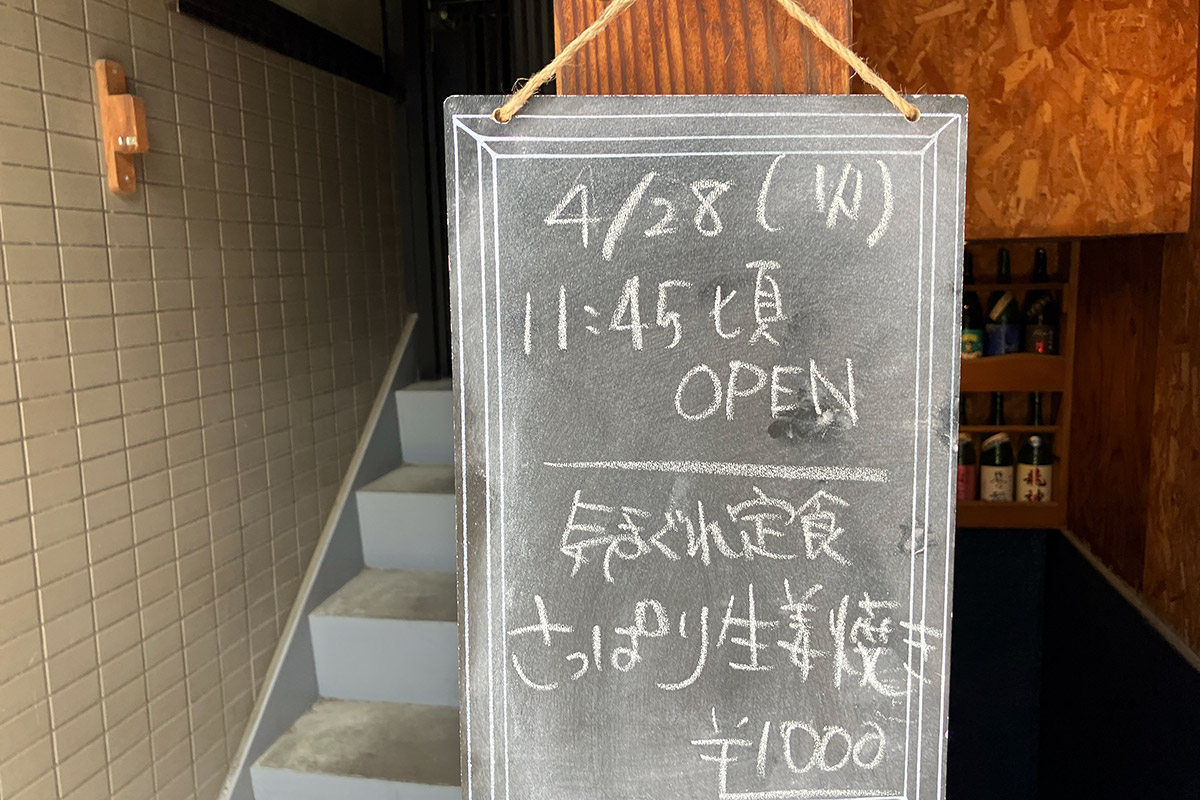 4/28(火)
11:45頃
OPEN
気まぐれ定食
さっぱり生姜焼き
¥1000
龍神